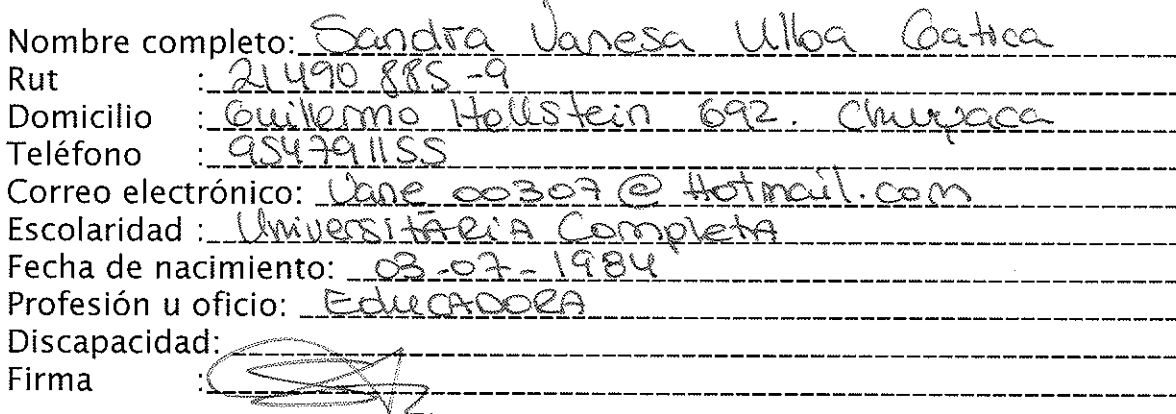 Nombre completo: Sandra Vanesa Ulloa Gatica
Rut : 21490 885-9
Domicilio : Guillermo Hollstein 692.
Teléfono : 954791155
Correo electrónico: Vane00307@Hotmail.com
Escolaridad : Universitaria Completa
Fecha de nacimiento: 03-07-1984
Profesión u oficio: EDUCADORA
Discapacidad:
Firma :